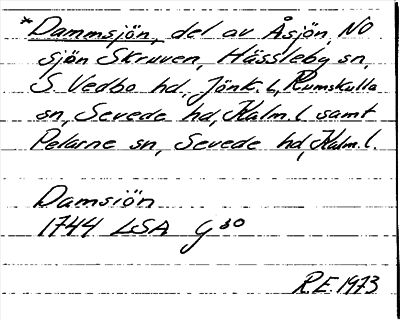 *Dammsjön, del av Åsjön, NO
sjön Skruven, Hässleby sn,
S. Vedbo hd, Jönk. l., Rumskulla
sn, Sevede hd, Kalm. l. samt
Pelarne sn, Sevede hd, Kalm. l.
Damsiön
1744 LSA G 30
R.E. 1973